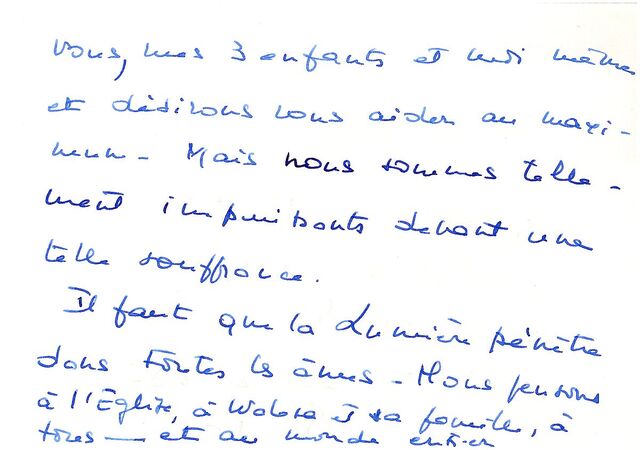 vous, mes 3 enfants et moi même
et désirons vous aider au maxi-
mum - Mais nous sommes telle-
ment impuissants devant une
telle souffrance.
Il faut que la Lumière pénètre
dans toutes les âmes - Nous pensons
à l'Église, à Walesa et sa famille, à
tous — et au monde entier